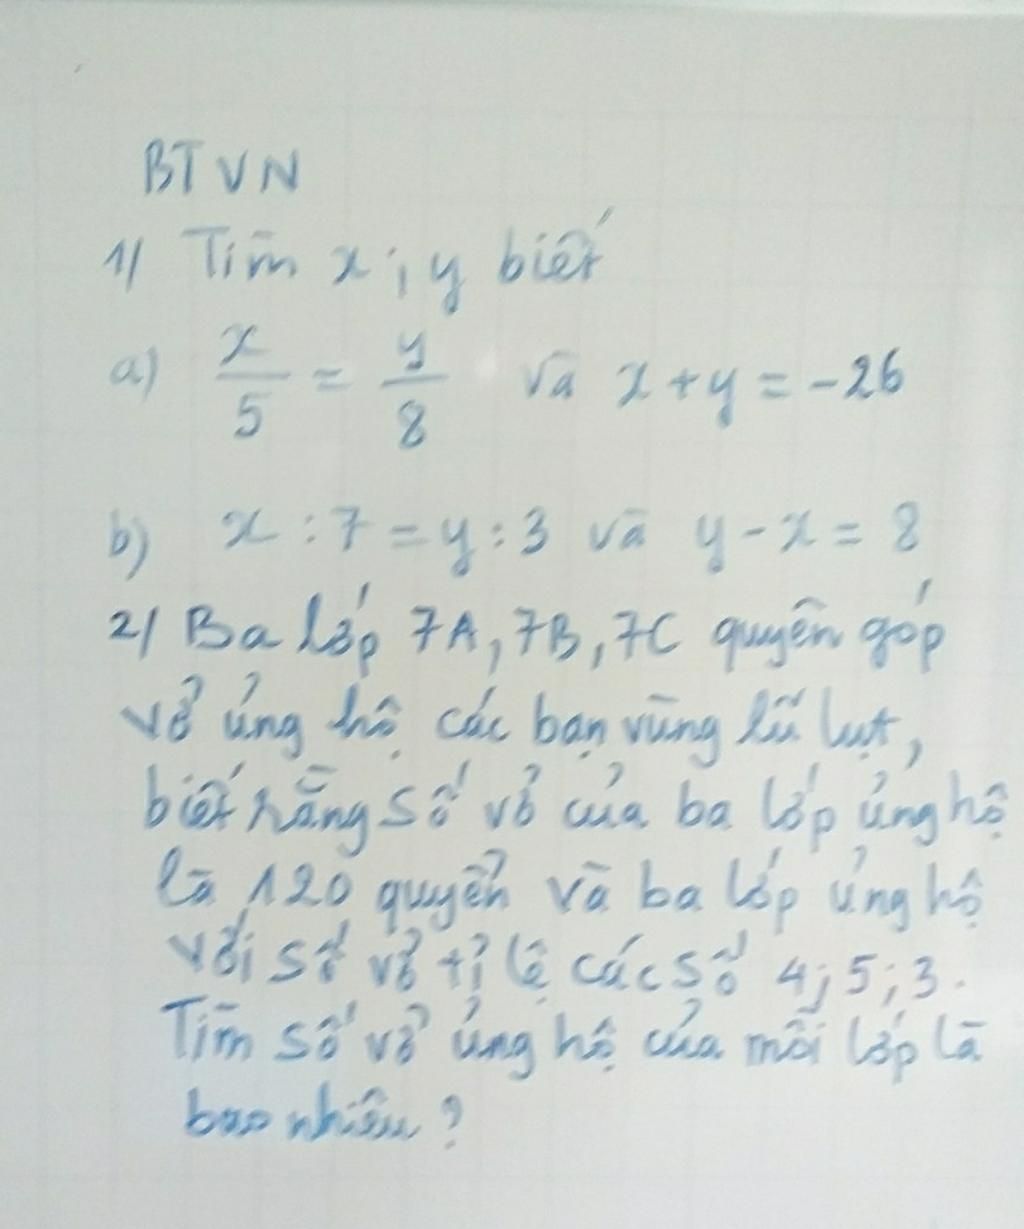 BTVN
1/ Tìm x ; y biết
a) x/5 = y/8 và x + y = -26
b) x : 7 = y : 3 và y - x = 8
2/ Ba lớp 7A, 7B, 7C quyên góp
vở ủng hộ các bạn vùng lũ lụt,
biết rằng số vở của ba lớp ủng hộ
là 120 quyển và ba lớp ủng hộ
với số vở tỉ lệ các số 4; 5; 3.
Tìm số vở ủng hộ của mỗi lớp là
bao nhiêu?